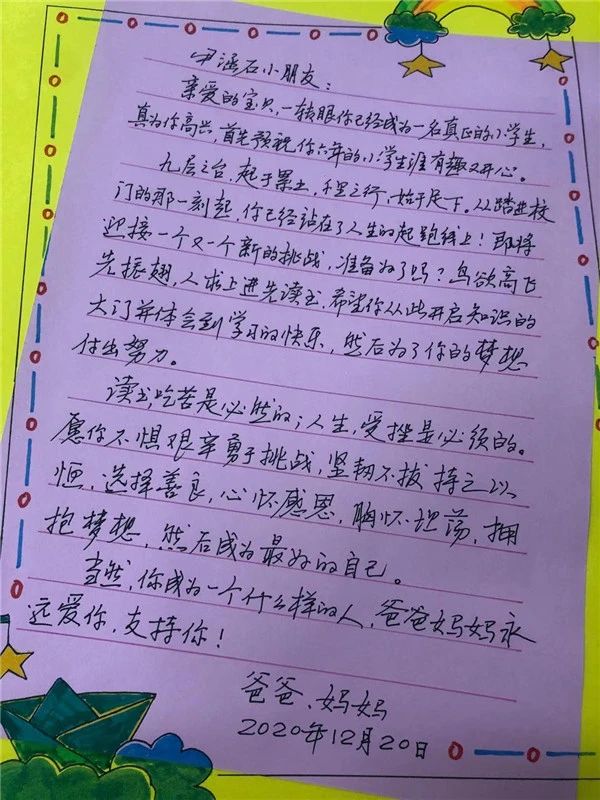 尹涵石小朋友：
亲爱的宝贝，一转眼你已经成为一名真正的小学生，
真为你高兴，首先预祝你六年的小学生涯有趣又开心。
九层之台，起于累土，千里之行，始于足下。从踏进校
门的那一刻起，你已经站在了人生的起跑线上！即将
迎接一个又一个新的挑战，准备好了吗？鸟欲高飞
先振翅，人求上进先读书，希望你从此开启知识的
大门并体会到学习的快乐，然后为了你的梦想
付出努力。
读书，吃苦是必然的；人生，受挫是必须的。
愿你不惧艰辛勇于挑战，坚韧不拔持之以
恒，选择善良，心怀感恩，胸怀坦荡，拥
抱梦想，然后成为最好的自己。
当然，你成为一个什么样的人，爸爸妈妈永
远爱你，支持你！
爸爸、妈妈
2020年12月20日